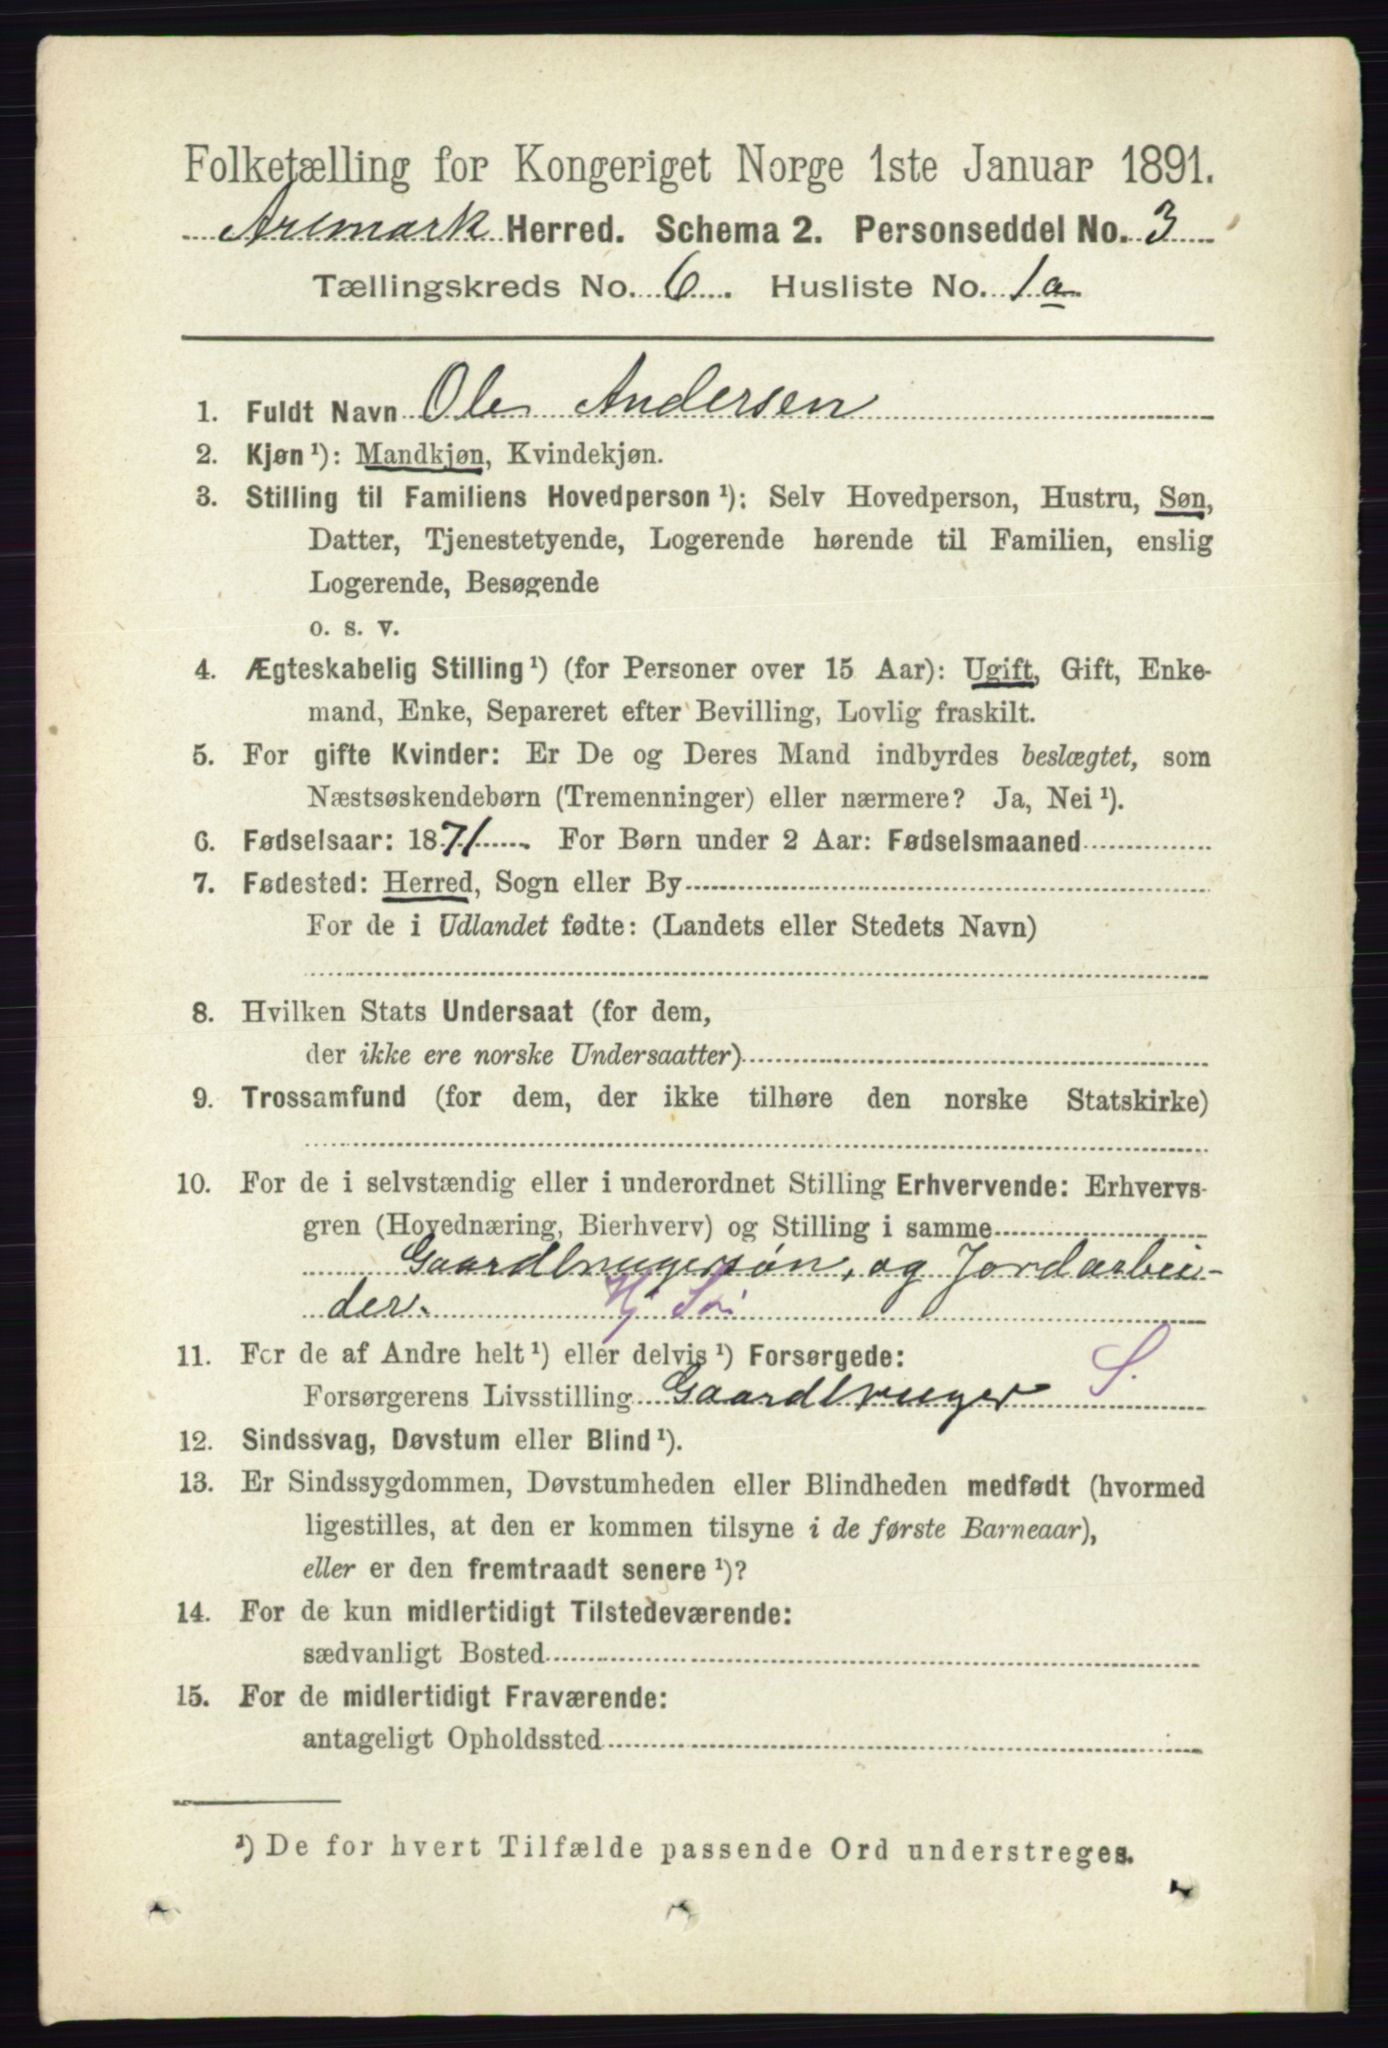 Folketælling for Kongeriget Norge 1ste Januar 1891.
Aremark Herred. Schema 2. Personseddel No. 3
Tællingskreds No. 6. Husliste No. 1a
1. Fuldt Navn Ole Andersen
2. Kjøn ¹): Mandkjøn, Kvindekjøn.
3. Stilling til Familiens Hovedperson ¹): Selv Hovedperson, Hustru, Søn,
Datter, Tjenestetyende, Logerende hørende til Familien, enslig
Logerende, Besøgende
o. s. v.
4. Ægteskabelig Stilling ¹) (for Personer over 15 Aar): Ugift, Gift, Enke-
mand, Enke, Separeret efter Bevilling, Lovlig fraskilt.
5. For gifte Kvinder: Er De og Deres Mand indbyrdes beslægtet, som
Næstsøskendebørn (Tremenninger) eller nærmere? Ja, Nei ¹).
6. Fødselsaar: 1871. For Børn under 2 Aar: Fødselsmaaned
7. Fødested: Herred, Sogn eller By
For de i Udlandet fødte: (Landets eller Stedets Navn)
8. Hvilken Stats Undersaat (for dem,
der ikke ere norske Undersaatter)
9. Trossamfund (for dem, der ikke tilhøre den norske Statskirke)
10. For de i selvstændig eller i underordnet Stilling Erhvervende: Erhvervs-
gren (Hovednæring, Bierhverv) og Stilling i samme
Gaardbrugersøn, og Jordarbei-
der. Hj
11. For de af Andre helt ¹) eller delvis ¹) Forsørgede:
Forsørgerens Livsstilling Gaardbruger S.
12. Sindssvag, Døvstum eller Blind ¹).
13. Er Sindssygdommen, Døvstumheden eller Blindheden medfødt (hvormed
ligestilles, at den er kommen tilsyne i de første Barneaar),
eller er den fremtraadt senere ¹)?
14. For de kun midlertidigt Tilstedeværende:
sædvanligt Bosted
15. For de midlertidigt Fraværende:
antageligt Opholdssted
¹) De for hvert Tilfælde passende Ord understreges.